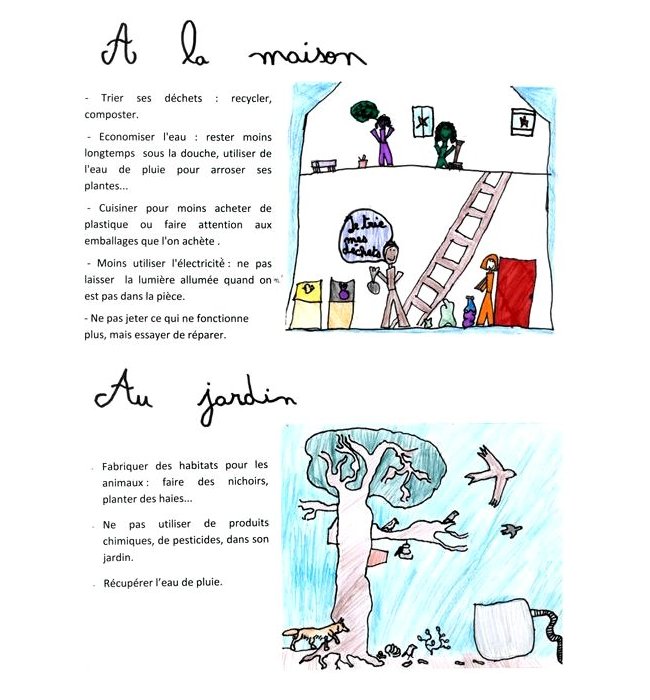 A la maison
- Trier ses déchets : recycler,
composter.
- Economiser l'eau : rester moins
longtemps sous la douche, utiliser de
l'eau de pluie pour arroser ses
plantes...
- Cuisiner pour moins acheter de
plastique ou faire attention aux
emballages que l'on achète .
- Moins utiliser l'électricité : ne pas
laisser la lumière allumée quand on n'
est pas dans la pièce.
- Ne pas jeter ce qui ne fonctionne
plus, mais essayer de réparer.
Je trie
mes
déchets
Au jardin
. Fabriquer des habitats pour les
animaux : faire des nichoirs,
planter des haies...
. Ne pas utiliser de produits
chimiques, de pesticides, dans son
jardin.
. Récupérer l'eau de pluie.